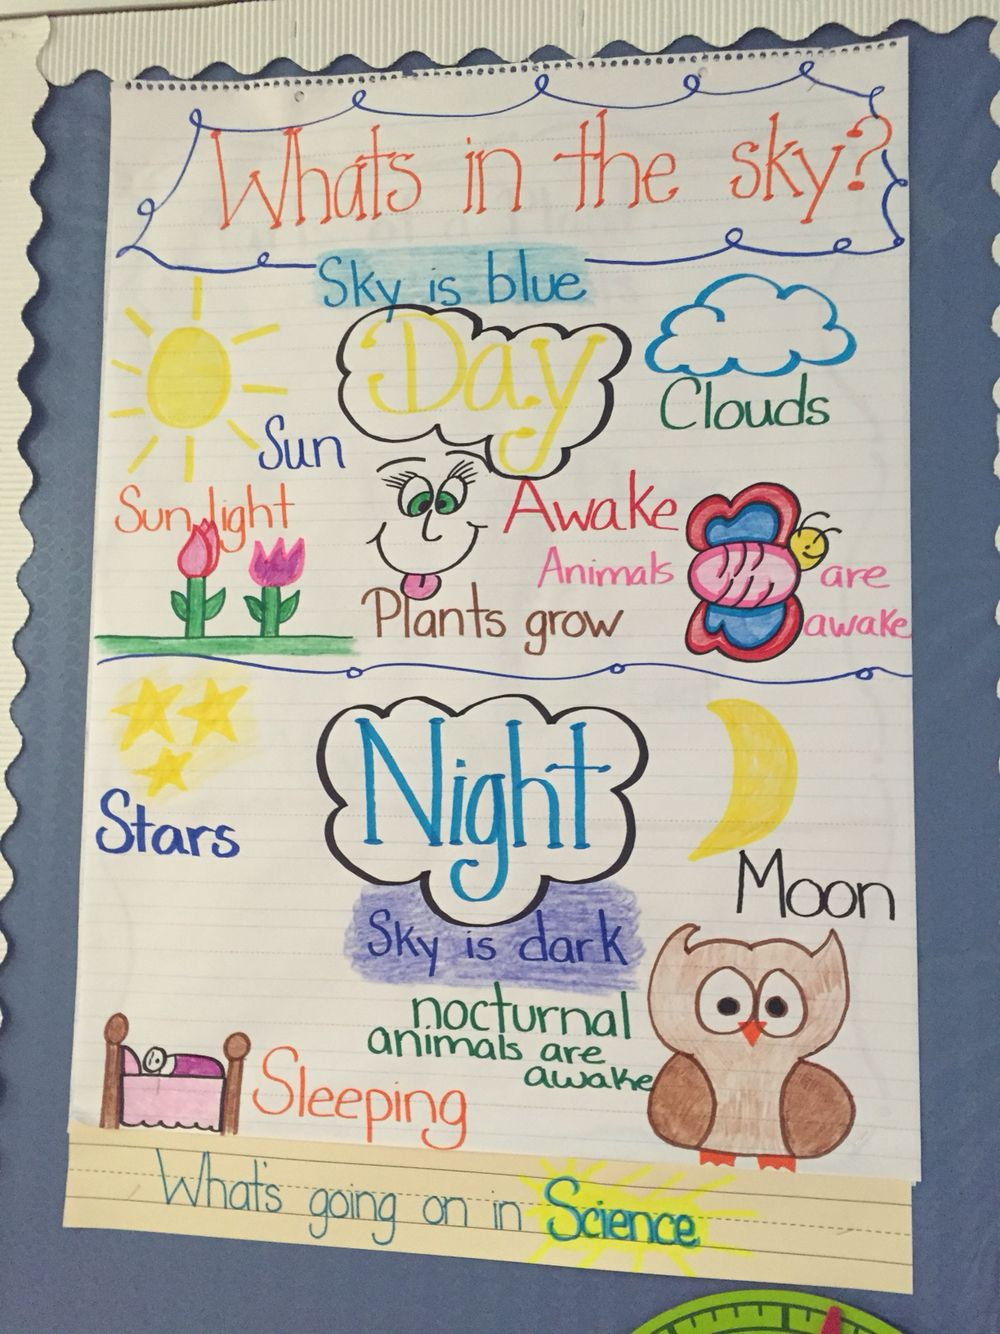 Whats in the sky?
Sky is blue
Day
Clouds
Sun
Sunlight
Awake
Animals are
awake
Plants grow
Night
Stars
Moon
Sky is dark
nocturnal
animals are
awake
Sleeping
What's going on in Science